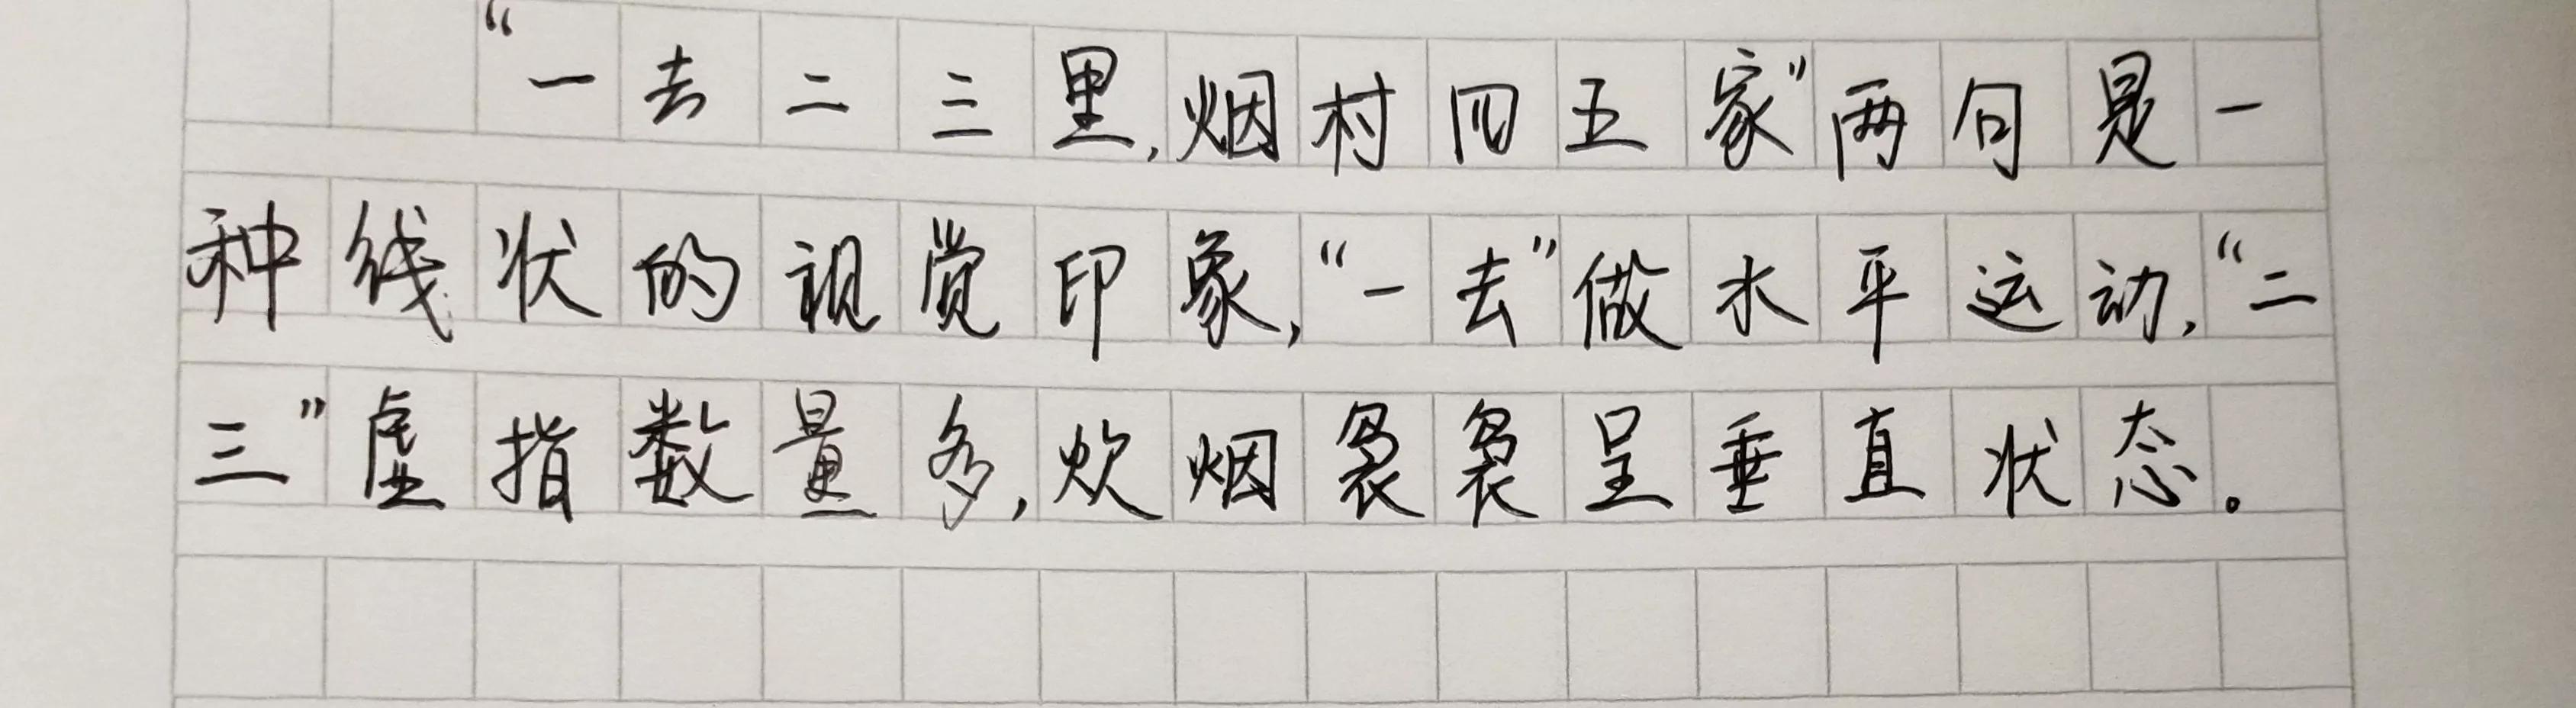 “一去二三里,烟村四五家”两句是一
种线状的视觉印象,“一去”做水平运动,“二
三”虚指数量多,炊烟袅袅呈垂直状态。